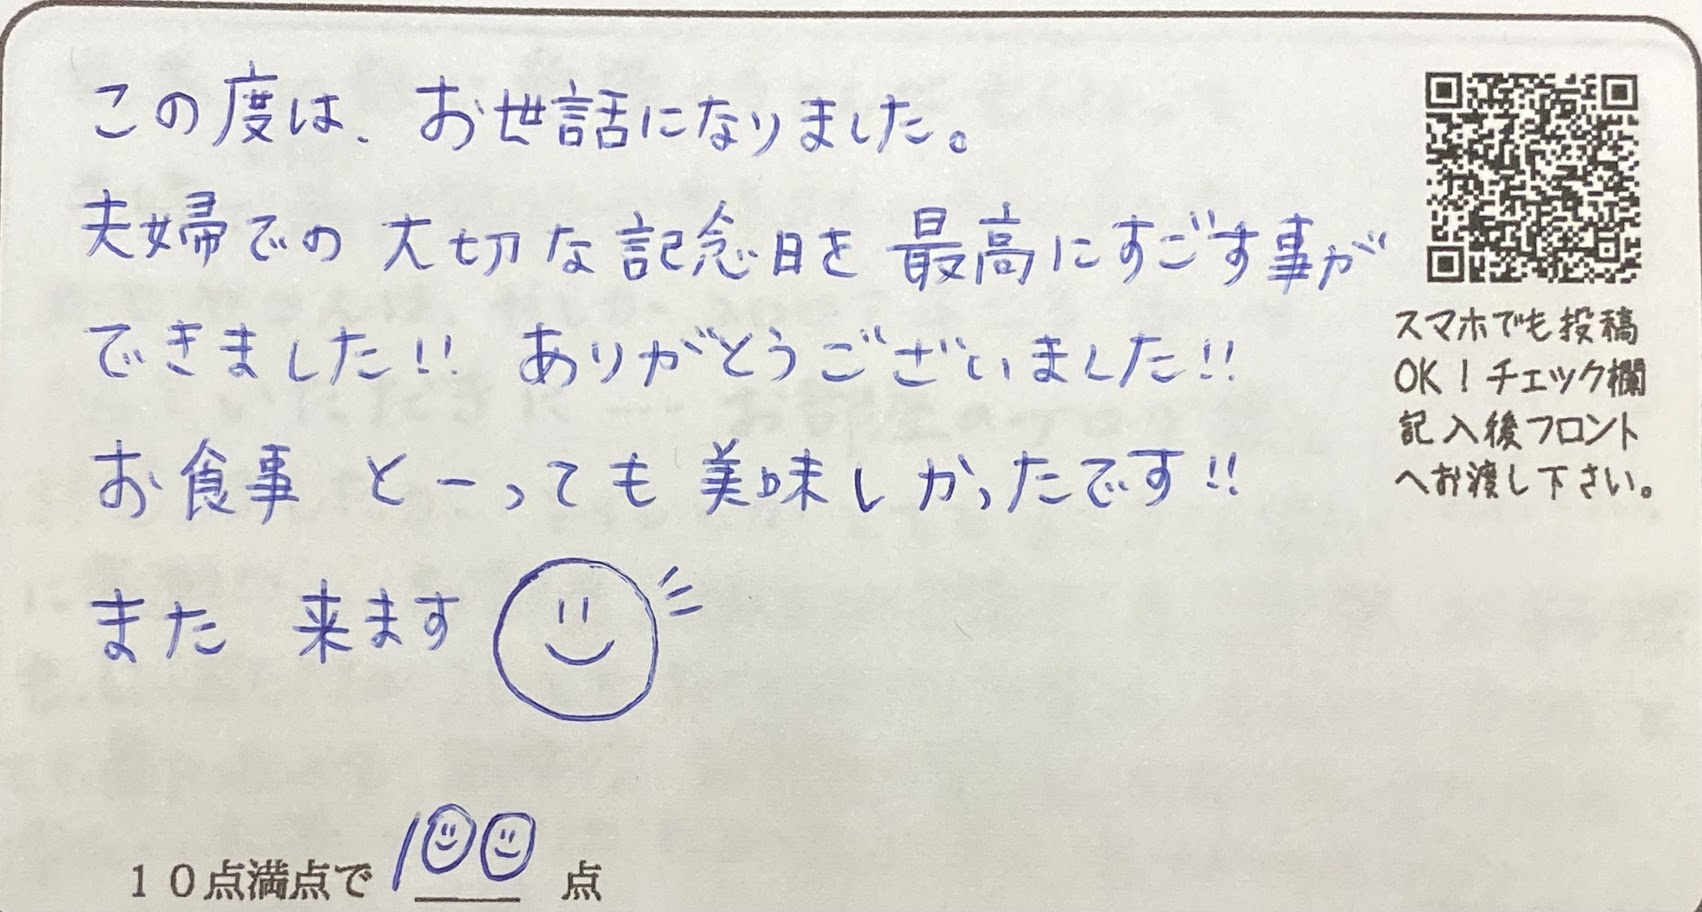 この度は、お世話になりました。
夫婦での 大切な記念日を 最高にすごす事が
できました!! ありがとうございました!!
お食事 とーっても 美味しかったです!!
また 来ます
10点満点で 100 点
スマホでも投稿
OK!チェック欄
記入後フロント
へお渡し下さい。